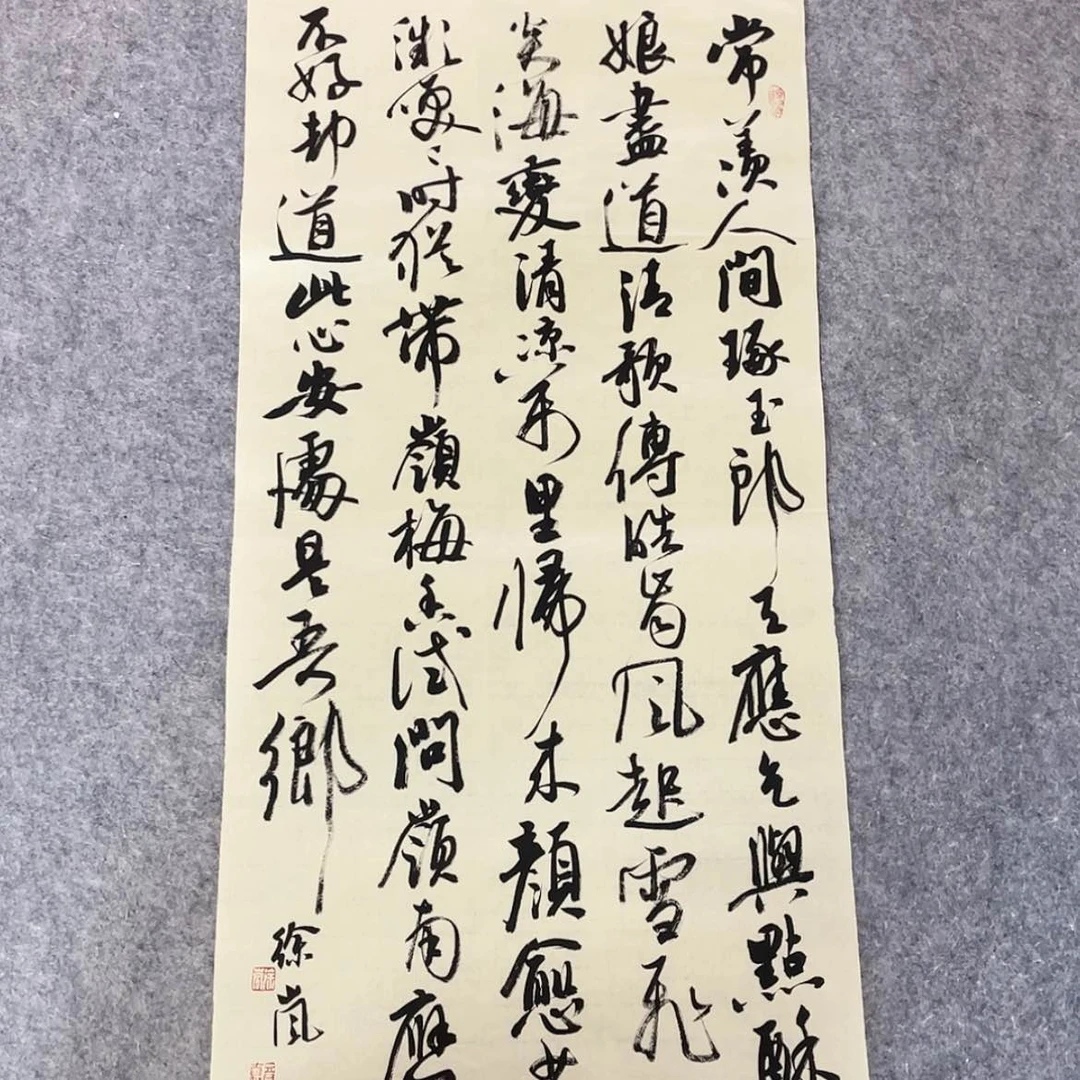 常羨人間琢玉郎天應乞與點酥
娘盡道清歌傳皓齒風起雪飛
炎海變清涼万里歸來顏愈少
微咲〻時猶帶嶺梅香試問嶺南應
不好却道此心安處是吾鄉
徐嵐